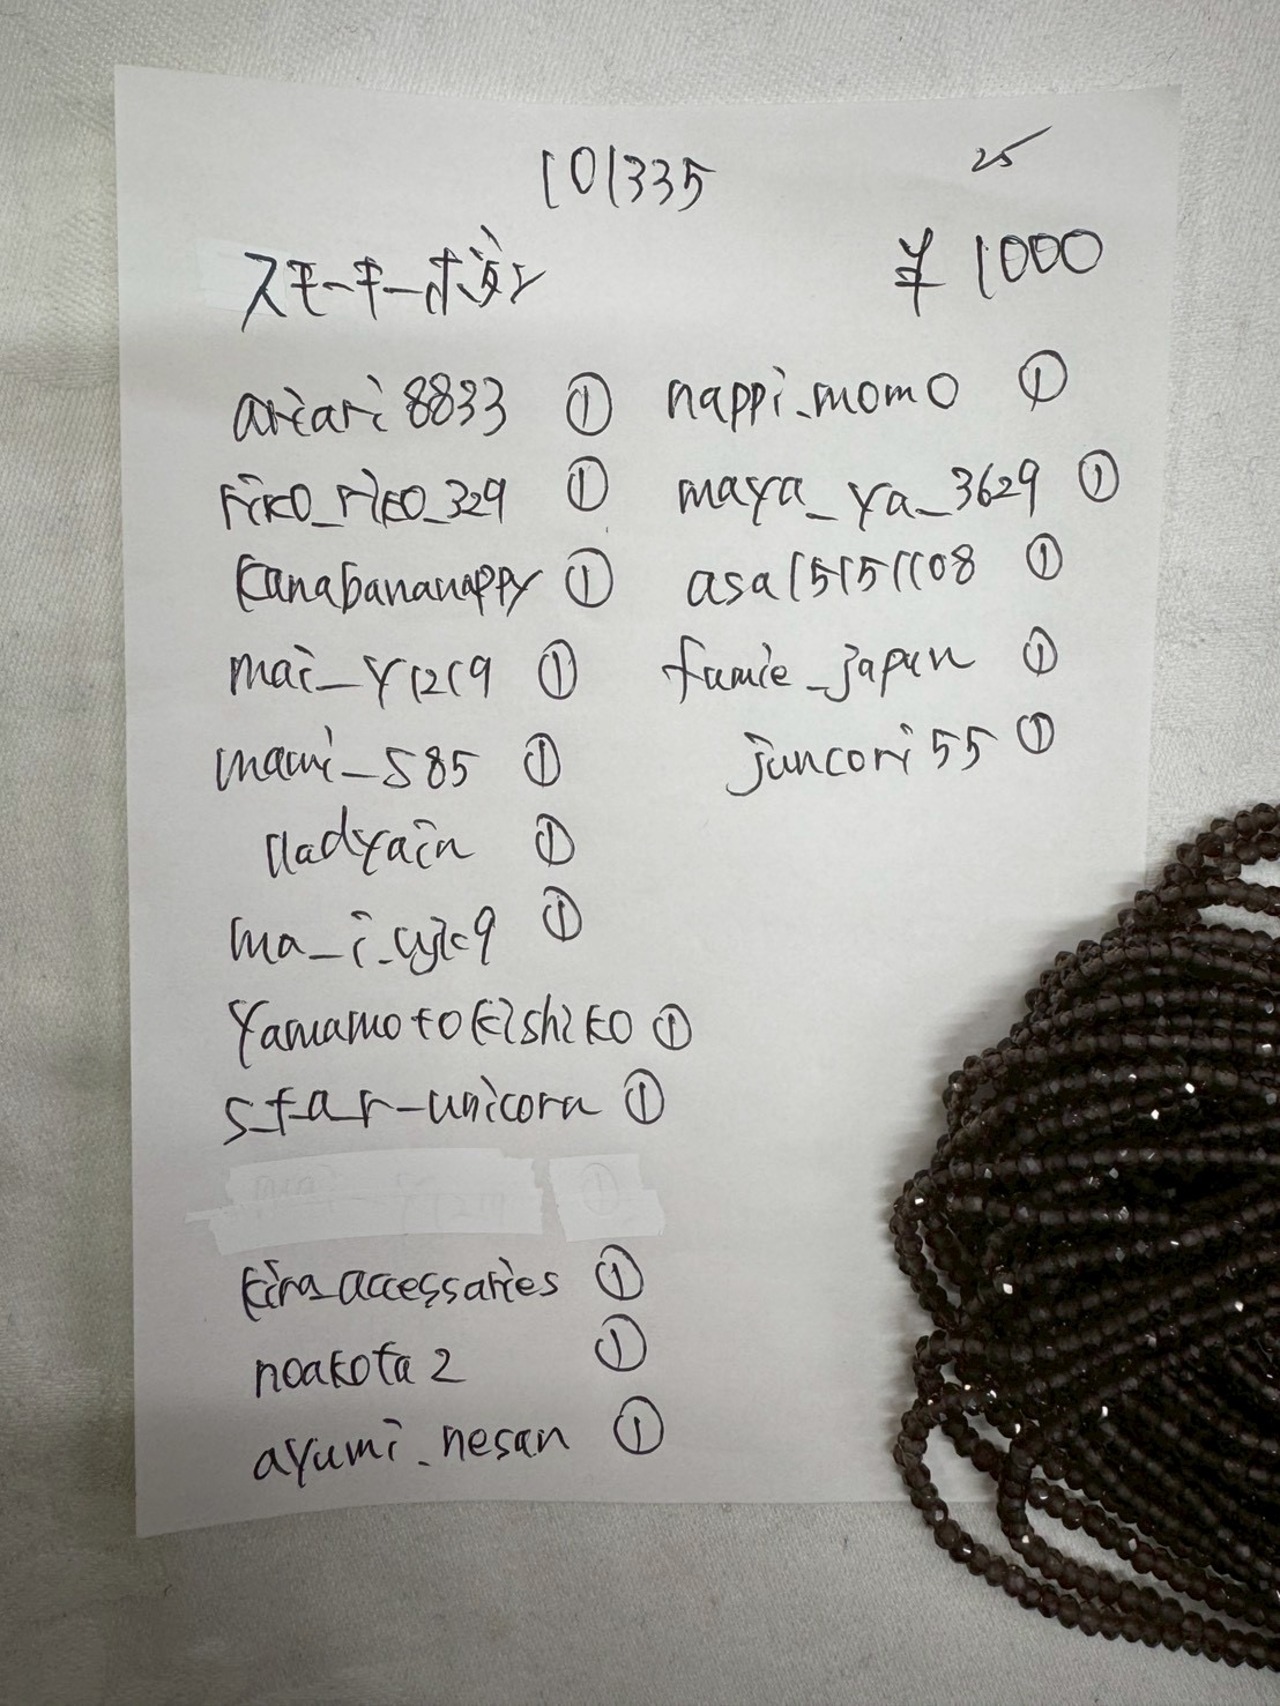 101335
25
スモーキーボタン
¥ 1000
ariari8833 ①
riko_riko_329 ①
kanabananappy ①
mai_y1219 ①
mami_s85 ①
nadyain ①
ma_i_
①
Yamamotokishiko ①
s_t_a_r_unicorn ①
kira_accessaries ①
noakota2 ①
ayumi_nesan ①
nappi_momo ①
maya_ya_3629 ①
asa15151108 ①
fumie_japan ①
juncori55 ①